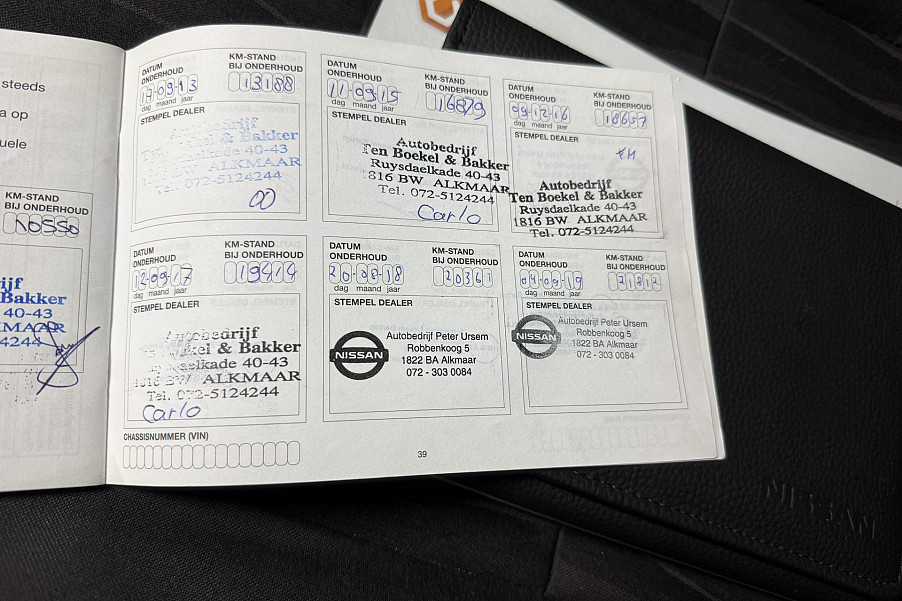 steeds
a op
uele
KM-STAND
BIJ ONDERHOUD
10550
ijf
Bakker
40-43
KMAAR
4244
DATUM
ONDERHOUD
17-09-13
dag maand jaar
KM-STAND
BIJ ONDERHOUD
13188
STEMPEL DEALER
Autobedrijf
Bakker
40-43
ALKMAAR
Tel. 072-5124244
DATUM
ONDERHOUD
11-09-15
dag maand jaar
KM-STAND
BIJ ONDERHOUD
16879
STEMPEL DEALER
Autobedrijf
Ten Boekel & Bakker
Ruysdaelkade 40-43
1816 BW ALKMAAR
Tel. 072-5124244
Carlo
DATUM
ONDERHOUD
09-12-16
dag maand jaar
KM-STAND
BIJ ONDERHOUD
18657
STEMPEL DEALER
Autobedrijf
Ten Boekel & Bakker
Ruysdaelkade 40-43
1816 BW ALKMAAR
Tel. 072-5124244
DATUM
ONDERHOUD
12-09-17
dag maand jaar
KM-STAND
BIJ ONDERHOUD
19414
STEMPEL DEALER
Autobedrijf
& Bakker
40-43
1816 BW ALKMAAR
Tel. 072-5124244
Carlo
DATUM
ONDERHOUD
20-08-18
dag maand jaar
KM-STAND
BIJ ONDERHOUD
20361
STEMPEL DEALER
NISSAN
Autobedrijf Peter Ursem
Robbenkoog 5
1822 BA Alkmaar
072 - 303 0084
DATUM
ONDERHOUD
04-09-19
dag maand jaar
KM-STAND
BIJ ONDERHOUD
21812
STEMPEL DEALER
NISSAN
Autobedrijf Peter Ursem
Robbenkoog 5
1822 BA Alkmaar
072 - 303 0084
CHASSISNUMMER (VIN)
39
NISSAN